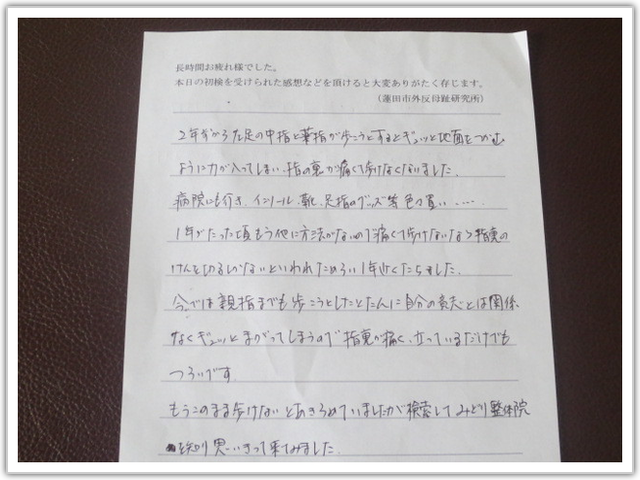 長時間お疲れ様でした。
本日の初検を受けられた感想などを頂けると大変ありがたく存じます。
(蓮田市外反母趾研究所)
2年前から左足の中指と薬指が歩こうとするとギュッと地面をつかむ
ように力が入ってしまい指の裏が痛くて歩けなくなりました。
病院にも行き、インソール、靴、足指のグッズ等色々買い・・・・
1年がたった頃もう他に方法がないので痛くて歩けないなら指裏の
けんを切るしかないといわれためらい1年近くたちました。
今では親指までも歩こうとしたとたんに自分の意志とは関係
なくギュッとまがってしまうので指裏が痛く、立っているだけでも
つらいです。
もうこのまま歩けないとあきらめていましたが検索してみどり整体院
を知り思いきって来てみました。